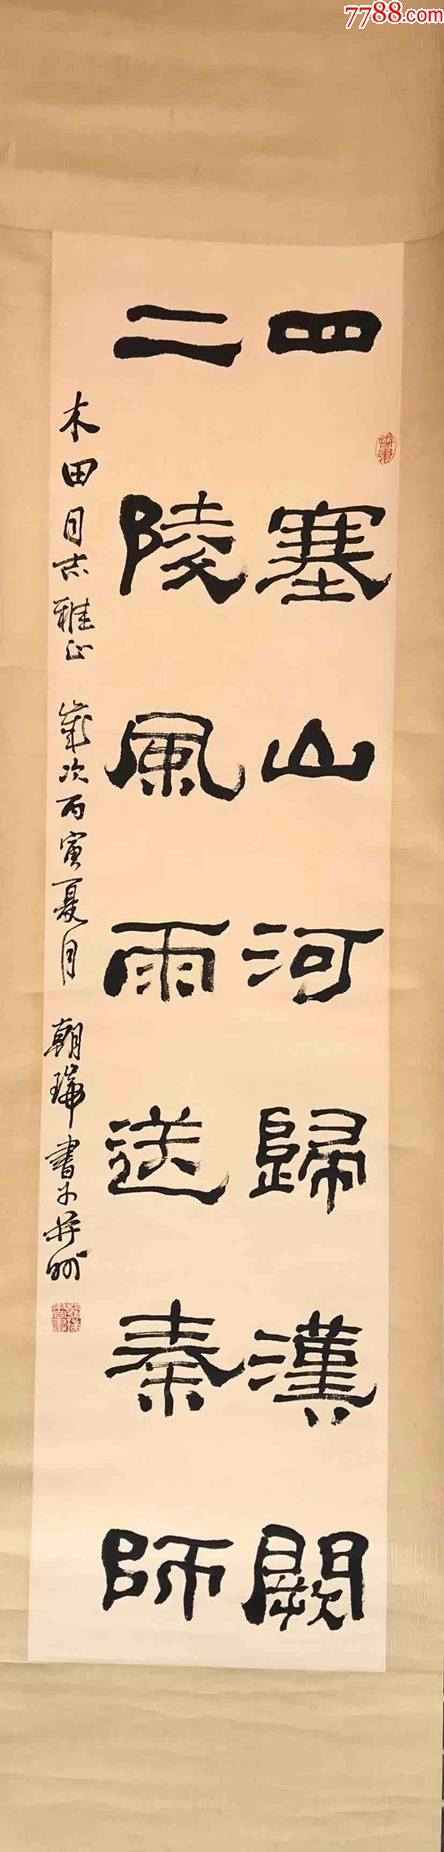 7788.com
四塞山河歸漢闕
二陵風雨送秦師
木田同志雅正 歲次丙寅夏月 朝瑞書於并州